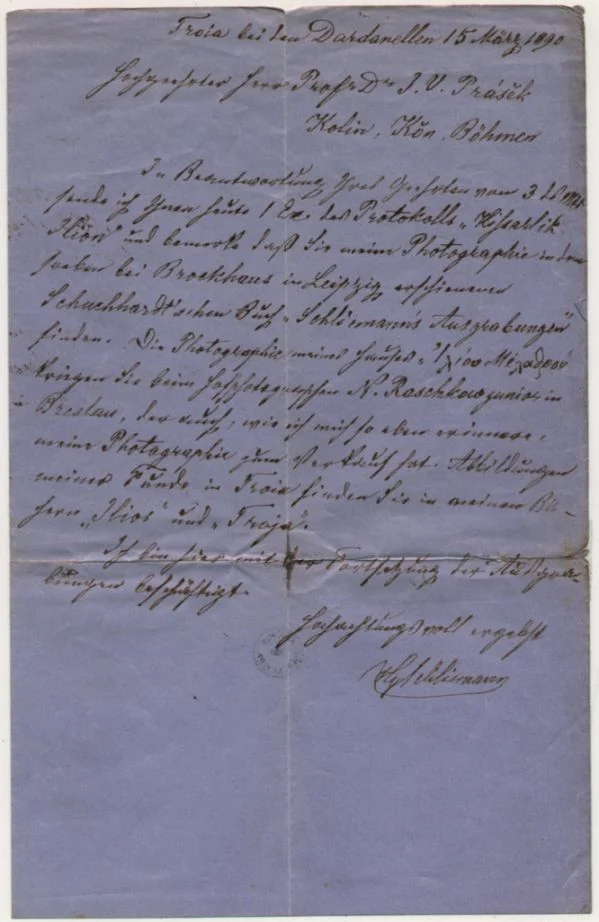 Troia bei den Dardanellen 15 März 1890
Hochgeehrter Herr Profr Dr J. V. Prášek
Kolin, Kön. Böhmen
In Beantwortung Ihres Geehrten vom 3 ds Mts
sende ich Ihnen heute 1 Ex. des Protokolls „Hissarlik
Ilion“ und bemerke daß Sie meine Photographie in dem
soeben bei Brockhaus in Leipzig erschienenen
Schuchhardt'schen Buch „Schliemann's Ausgrabungen“
finden. Die Photographie meines Hauses „Ἰλίου Μέλαθρον“
kriegen Sie beim Hofphotographen N. Raschkow junior in
Breslau, der auch, wie ich mich so eben erinnere,
meine Photographie zum Verkauf hat. Abbildungen
meiner Funde in Troia finden Sie in meinen Bü-
chern „Ilios“ und „Troja“.
Ich bin hier mit der Fortsetzung der Ausgra-
bungen beschäftigt.
Hochachtungsvoll ergebst
Hy Schliemann